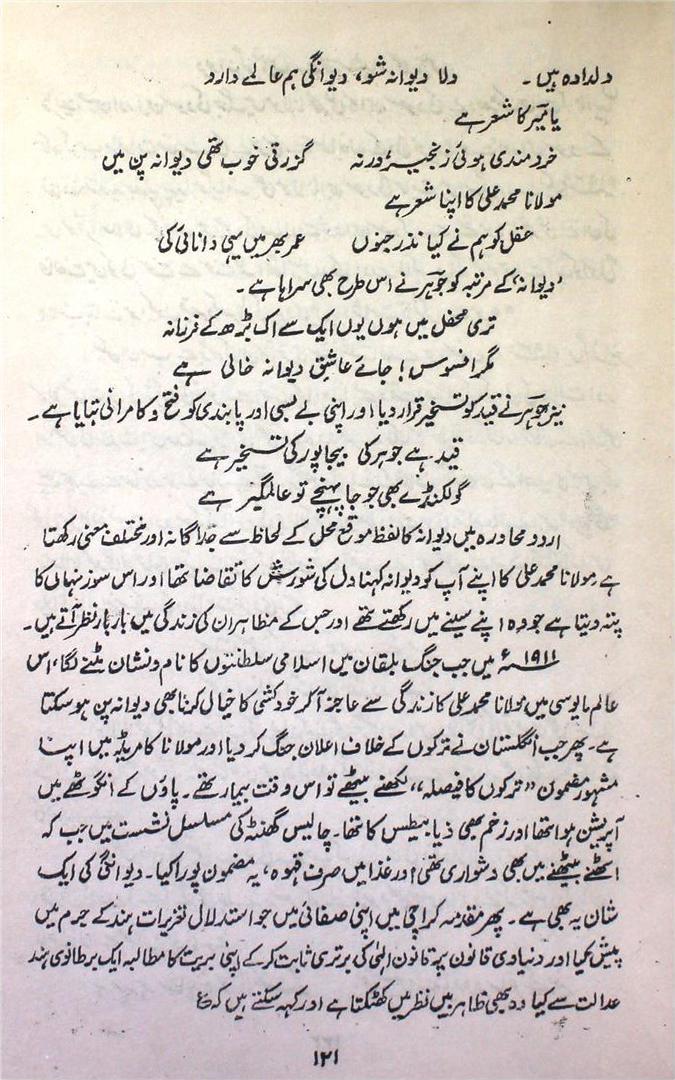 دلدادہ ہیں۔ دلا دیوانہ شو، دیوانگی ہم عالمے دارد
یا میر کا شعر ہے
خردمندی ہوئی زنجیر ورنہ گزرتی خوب تھی دیوانہ پن میں
مولانا محمد علی کا اپنا شعر ہے
عقل کو ہم نے کیا نذر جنوں عمر بھر میں یہی دانائی کی
’دیوانہ‘ کے مرتبہ کو جوہر نے اس طرح بھی سراہا ہے۔
تری محفل میں ہوں یوں ایک سے اک بڑھ کے فرزانہ
مگر افسوس! جائے عاشق دیوانہ خالی ہے
نیز جوہر نے قید کو تسخیر قرار دیا اور اپنی بے بسی اور پابندی کو فتح و کامرانی بتایا ہے۔
قید ہے جوہر کی بیجاپور کی تسخیر ہے
گولکنڈے بھی جو جا پہنچے تو عالمگیر ہے
اردو محاورہ میں دیوانہ کا لفظ موقع محل کے لحاظ سے جداگانہ اور مختلف معنی رکھتا
ہے مولانا محمد علی کا اپنے آپ کو دیوانہ کہنا دل کی شورش کا تقاضا تھا اور اس سوز نہاں کا
پتہ دیتا ہے جو وہ اپنے سینے میں رکھتے تھے اور جس کے مظاہر ان کی زندگی میں بار بار نظر آتے ہیں۔
۱۹۱۱ء میں جب جنگ بلقان میں اسلامی سلطنتوں کا نام و نشان مٹنے لگا، اس
عالم مایوسی میں مولانا محمد علی کا زندگی سے عاجز آکر خودکشی کا خیال کرنا بھی دیوانہ پن ہو سکتا
ہے۔ پھر جب انگلستان نے ترکوں کے خلاف اعلان جنگ کر دیا اور مولانا کامریڈ میں اپنا
مشہور مضمون ”ترکوں کا فیصلہ“ لکھنے بیٹھے تو اس وقت بیمار تھے۔ پاؤں کے انگوٹھے میں
آپریشن ہوا تھا اور زخم بھی ذیابیطس کا تھا۔ چالیس گھنٹہ کی مسلسل نشست میں جب کہ
اٹھنے بیٹھنے میں بھی دشواری تھی اور غذا میں صرف قہوہ، یہ مضمون پورا کیا۔ دیوانگی کی ایک
شان یہ بھی ہے۔ پھر مقدمہ کراچی میں اپنی صفائی میں جو استدلال تعزیرات ہند کے جرم میں
پیش کیا اور دنیاوی قانون پر قانون الٰہی کی برتری ثابت کر کے اپنی بریت کا مطالبہ ایک برطانوی ہند
عدالت سے کیا وہ بھی ظاہر بیں نظر میں کھٹکتا ہے اور کہہ سکتے ہیں کہ ع
۱۲۱